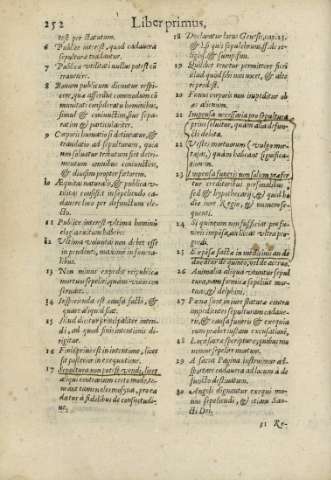 252 Liber primus,
test per statutum.
6 Publice interest, quod cadauera
sepultura tradantur.
7 Publica vtilitati nullus potest cū
trauctire.
8 Bonum publicum dicuntur respi-
cere, qua afferunt commodum cō
munitati consideratis hominibus,
simul & coniunctim, siue sepa-
ratim & particulariter.
9 Corporis humatio si detineatur, &
translatio ad sepulturam, quia
non soluatur tributum fiet detri-
mentum omnibus coniunctim,
& diuisim propter fœtorem.
10 Æquitas naturalis, & publica v-
tilitas consistit in sepeliendo ca-
dauere loco per defunctum ele-
cto.
11 Publice interest vltima hominū
elogia exitum habere.
12 Vltima voluntas non debet esse
in pendenti, maxime in funera-
libus.
13 Non minus expedit reipublica
mortuos sepeliri, quam viuos con
seruare.
14 Inspicienda est causa facti, &
quare aliquid fiat.
15 Illud dicitur principaliter inten-
di, ad quod finis intentionis di-
rigitur.
16 Finis prius est in intentione, licet
sit posterior in executione.
17 Sepultura non potest vendi, licet
aliqui contrarium certo modo, te-
neant tamen eleemosyna, proro
datur à fidelibus de consuetudi-
ne.
18 Declaratur litera Genesis, cap. 23.
& l. si quis sepulchrum, ff. de re-
ligios. & sumpt. fun.
19 Quilibet tenetur permittere fieri
illud quod sibi non nocet, & alte
ri prodest.
20 Fœnus corporis non impeditur ob
æs alienum.
21 Impensa necessaria pro sepultura
prius soluitur, quam alia defun-
cti debita.
22 Vestes mortuorum (vulgo mor-
tajas,) quam habeant significa-
tionem.
23 Impensa funeris non solum præfer-
tur creditoribus personalibus
sed & hypothecarijs, & quid ho
die iure Regio, & numero se-
quenti.
24 Si quintum non sufficiat pro fu-
neris impensa, an liceat vltra pro-
gredi.
25 Expensa facta in missis an de-
ducatur de quinto, vel de aceruo.
26 Animalia aliqua vtuntur sepul
tura, nam formica sepeliunt mor-
tuos, & delphini.
27 Pœna sunt in iure statuta contra
impedientes sepulturam cadaue-
ris, & causa funeris & exequia
rum præbet iustam excusationē.
28 Laus sacra Scriptura, quibus mu
nimine sepelire mortuos.
29 A sacra Pagina instruimur ad-
spectare cadauera ad locum à de
functo destinatum.
30 Angeli dignantur exequi mo-
nus sepeliendi, & etiam San-
cti Dei.
31 Re-